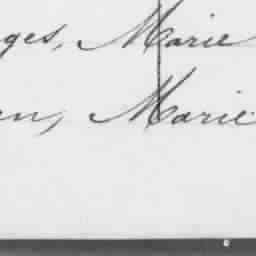 ges, Marie
en, Marie